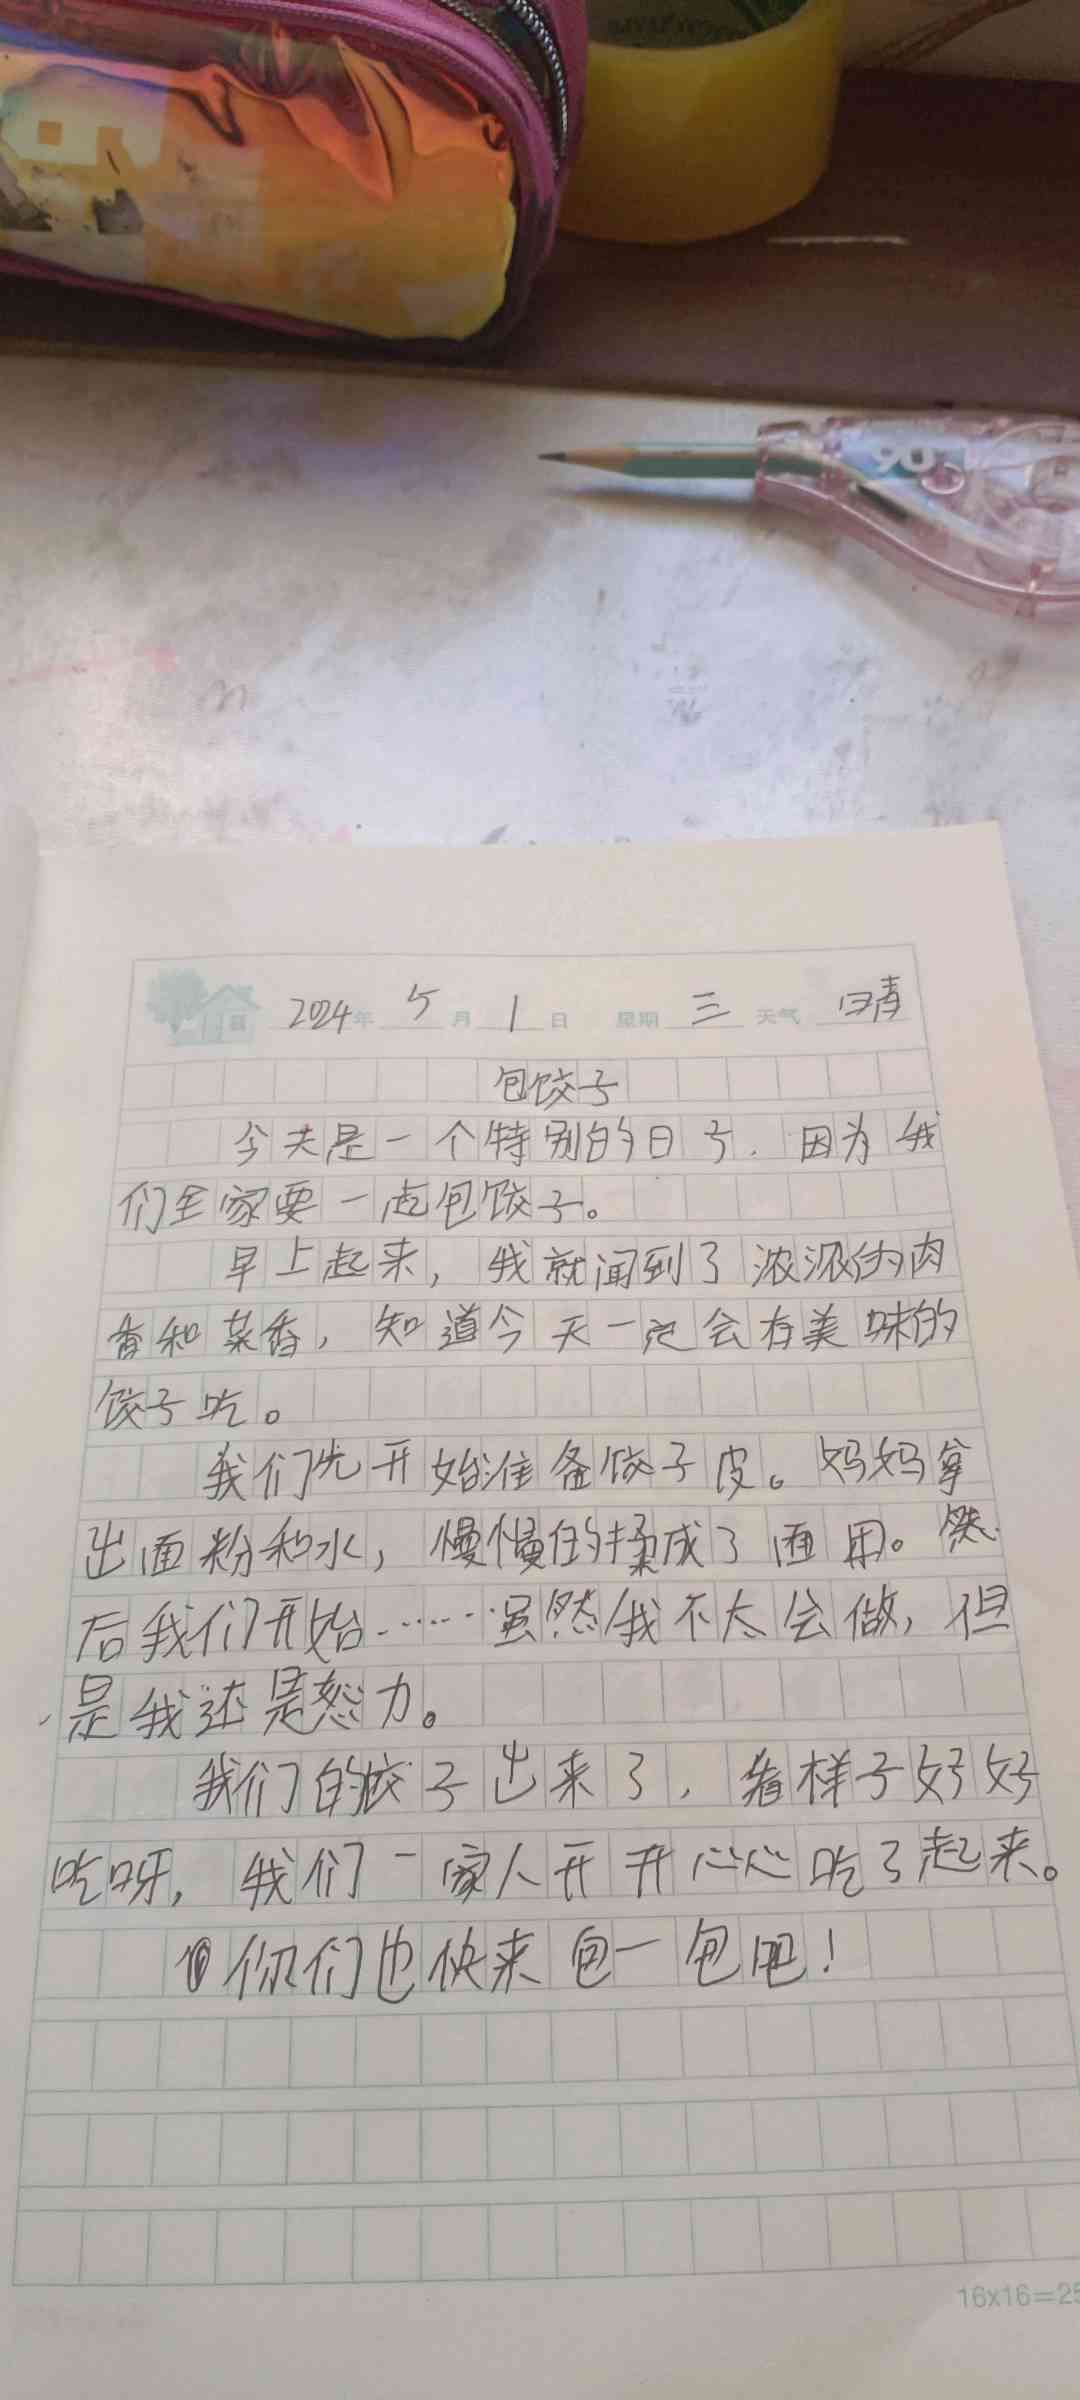 90
2024年 5 月 1 日 星期 三 天气 晴
包饺子
今天是一个特别的日子.因为我
们全家要一起包饺子。
早上起来,我就闻到了浓浓的肉
香和菜香,知道今天一定会有美味的
饺子吃。
我们先开始准备饺子皮。妈妈拿
出面粉和水,慢慢的揉成了面团。然
后我们开始……虽然我不太会做,但
是我还是努力。
我们的饺子出来了,看样子好好
吃呀,我们一家人开开心心吃了起来。
你们也快来包一包吧!
16x16=25